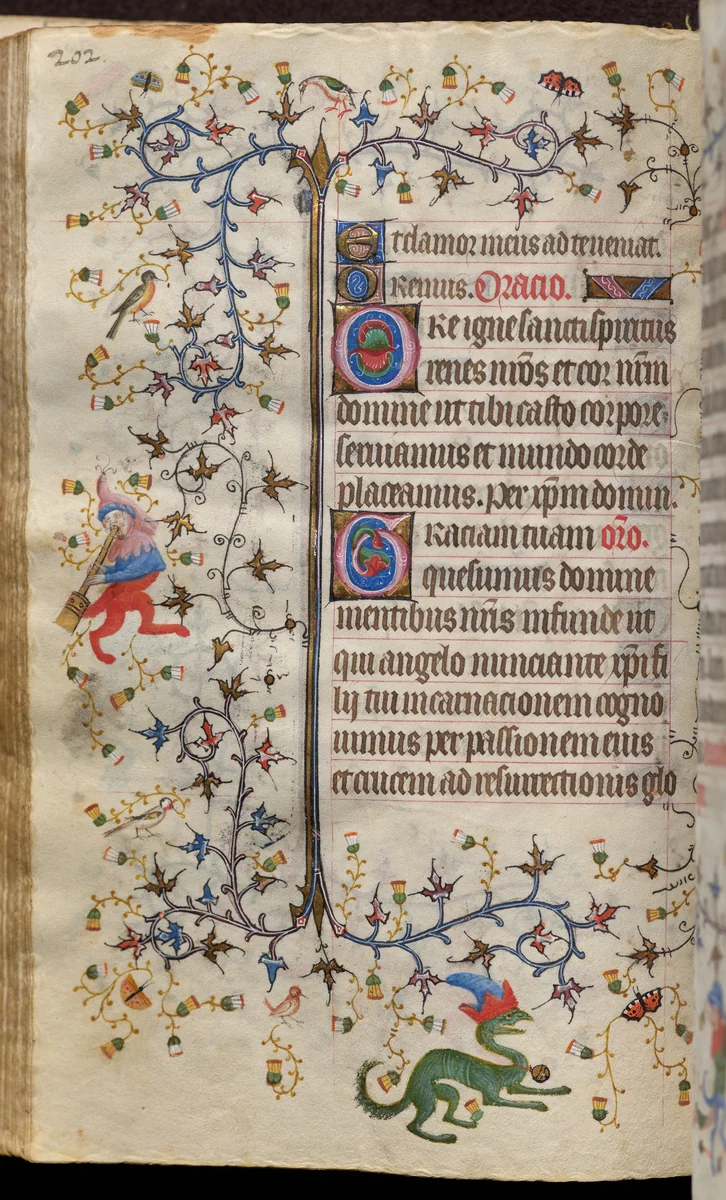 202.
Et clamor meus ad te veniat.
Oremus. Oracio.
Ure igne sancti spiritus
renes nr̄os et cor nr̄m
domine ut tibi casto corpore
seruiamus et mundo corde
placeamus. Per xp̄m domin.
Graciam tuam or̄o.
quesumus domine
mentibus nr̄is infunde ut
qui angelo nunciante xp̄i fi
lij tui incarnacionem cogno
uimus per passionem eius
et crucem ad resurrectionis glo